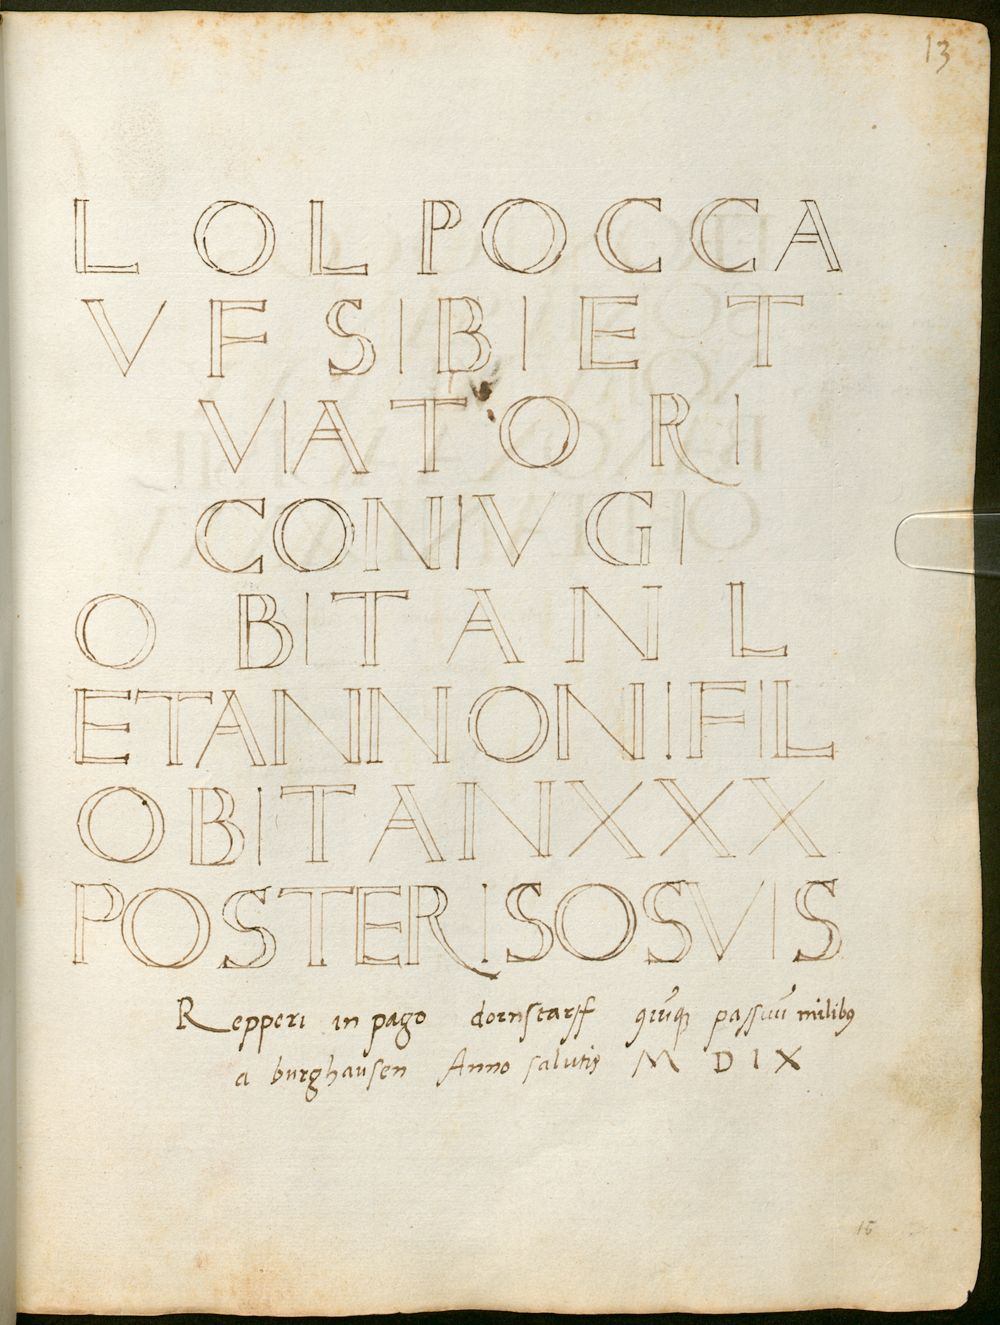 13
L OL POCCA
VF SIBI ET
VIATORI
CONIVGI
OBIT AN L
ETANNONI FIL
OBIT AN XXX
POSTERISQSVIS
Repperi in pago dornstarff quinq passuũ milibꝯ
a burghausen Anno salutis M D I X
15